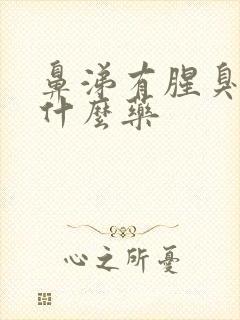 鼻涕有腥臭
什麼藥
心之所憂